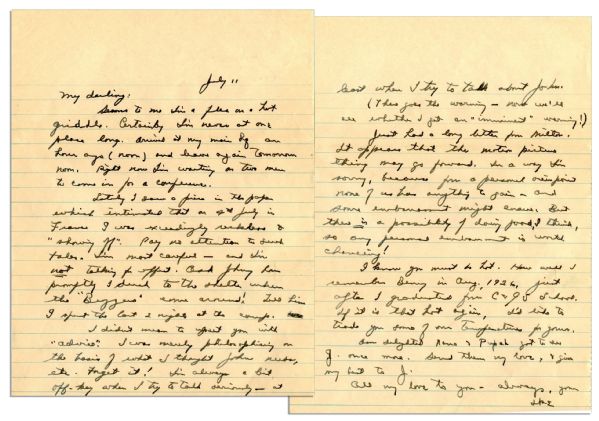 July 11
My darling:
Seems to me I'm a flea on a hot
griddle. Certainly I'm never at one
place long. Arrived at my main Hq an
hour ago (noon) and leave again tomorrow
noon. Right now I'm waiting on two men
to come in for a conference.
Lately I saw a piece in the paper
which intimated that on 4th July in
France I was exceedingly reckless &
"showing off". Pay no attention to such
tales. I'm most careful — and I'm
not talking for effect. Ask Johnny how
promptly I dived to the shelter when
the "Buzzers" came around! Tell him
I spent the last 2 nights at the camp.
I didn't mean to upset you with
"advice". I was merely philosophizing on
the basis of what I thought John needs,
etc. Forget it! I'm always a bit
off-key when I try to talk seriously — at
least when I try to talk about John.
(There goes the warning — now we'll
see whether I get an "imminent" warning!)
Just had a long letter from Milton.
It appears that the motion picture
thing may go forward. In a way I'm
sorry, because from a personal viewpoint
none of us has anything to gain — and
some embarrassment might ensue. But
there is a possibility of doing good, I think,
so any personal embarrassment is worth
chancing!
I know you must be hot. How well I
remember Denver in Aug, 1926, just
after I graduated from C & GS School.
If it is that hot again, I'd like to
trade you some of our temperature for yours.
Am delighted Mamo & Papah got to see
J. once more. Send them my love, & give
my best to J.
All my love to you — always, your
Ike